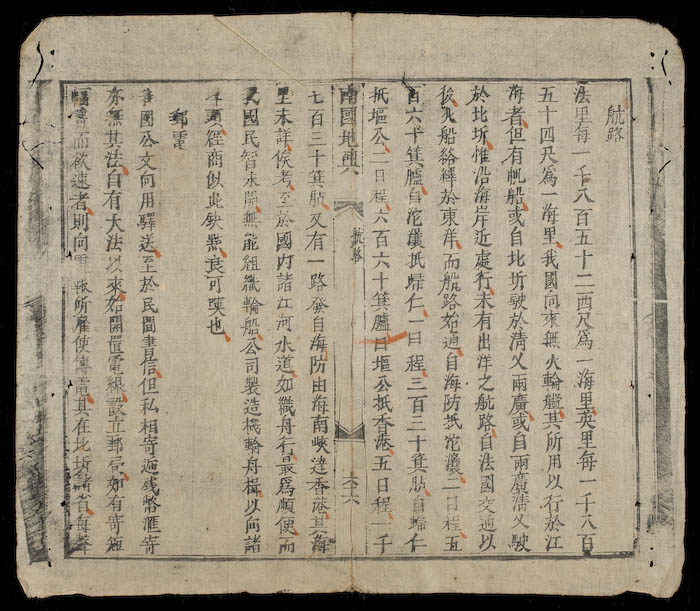 航路
法里每一千八百五十二西尺爲一海里英里每一千八百
五十四尺爲一海里我國向來無火輪艦其所用以行於江
海者但有帆船或自北圻駛於清乂兩廣或自兩廣清乂駛
於北圻惟沿海岸近處行未有出洋之航路自法國交通以
後火船絡繹於東洋而航路始通自海防抵沱灢二日程五
百六十箕臚自沱灢抵歸仁一日程三百三十箕胋自歸仁
抵塸公二日程六百六十箕臚自塸公抵香港五日程一千
南國地輿 航路 六十六
七百三十箕胋又有一路發自海防由海南峽達香港其海
里未詳俟考至於國內諸江河水道如織舟行最爲順便而
我國民智未開無能組織輪船公司製造機輪舟楫以向諸
埠頭經商似此缺點良可嘆也
郵電
我國公文向用驛送至於民間書信但私相寄遞錢幣滙寄
亦無其法自有大法以來始開置電線設立郵局如有寄短
書而欲速者則向電報所雇使傳電其在北圻諸省每聲